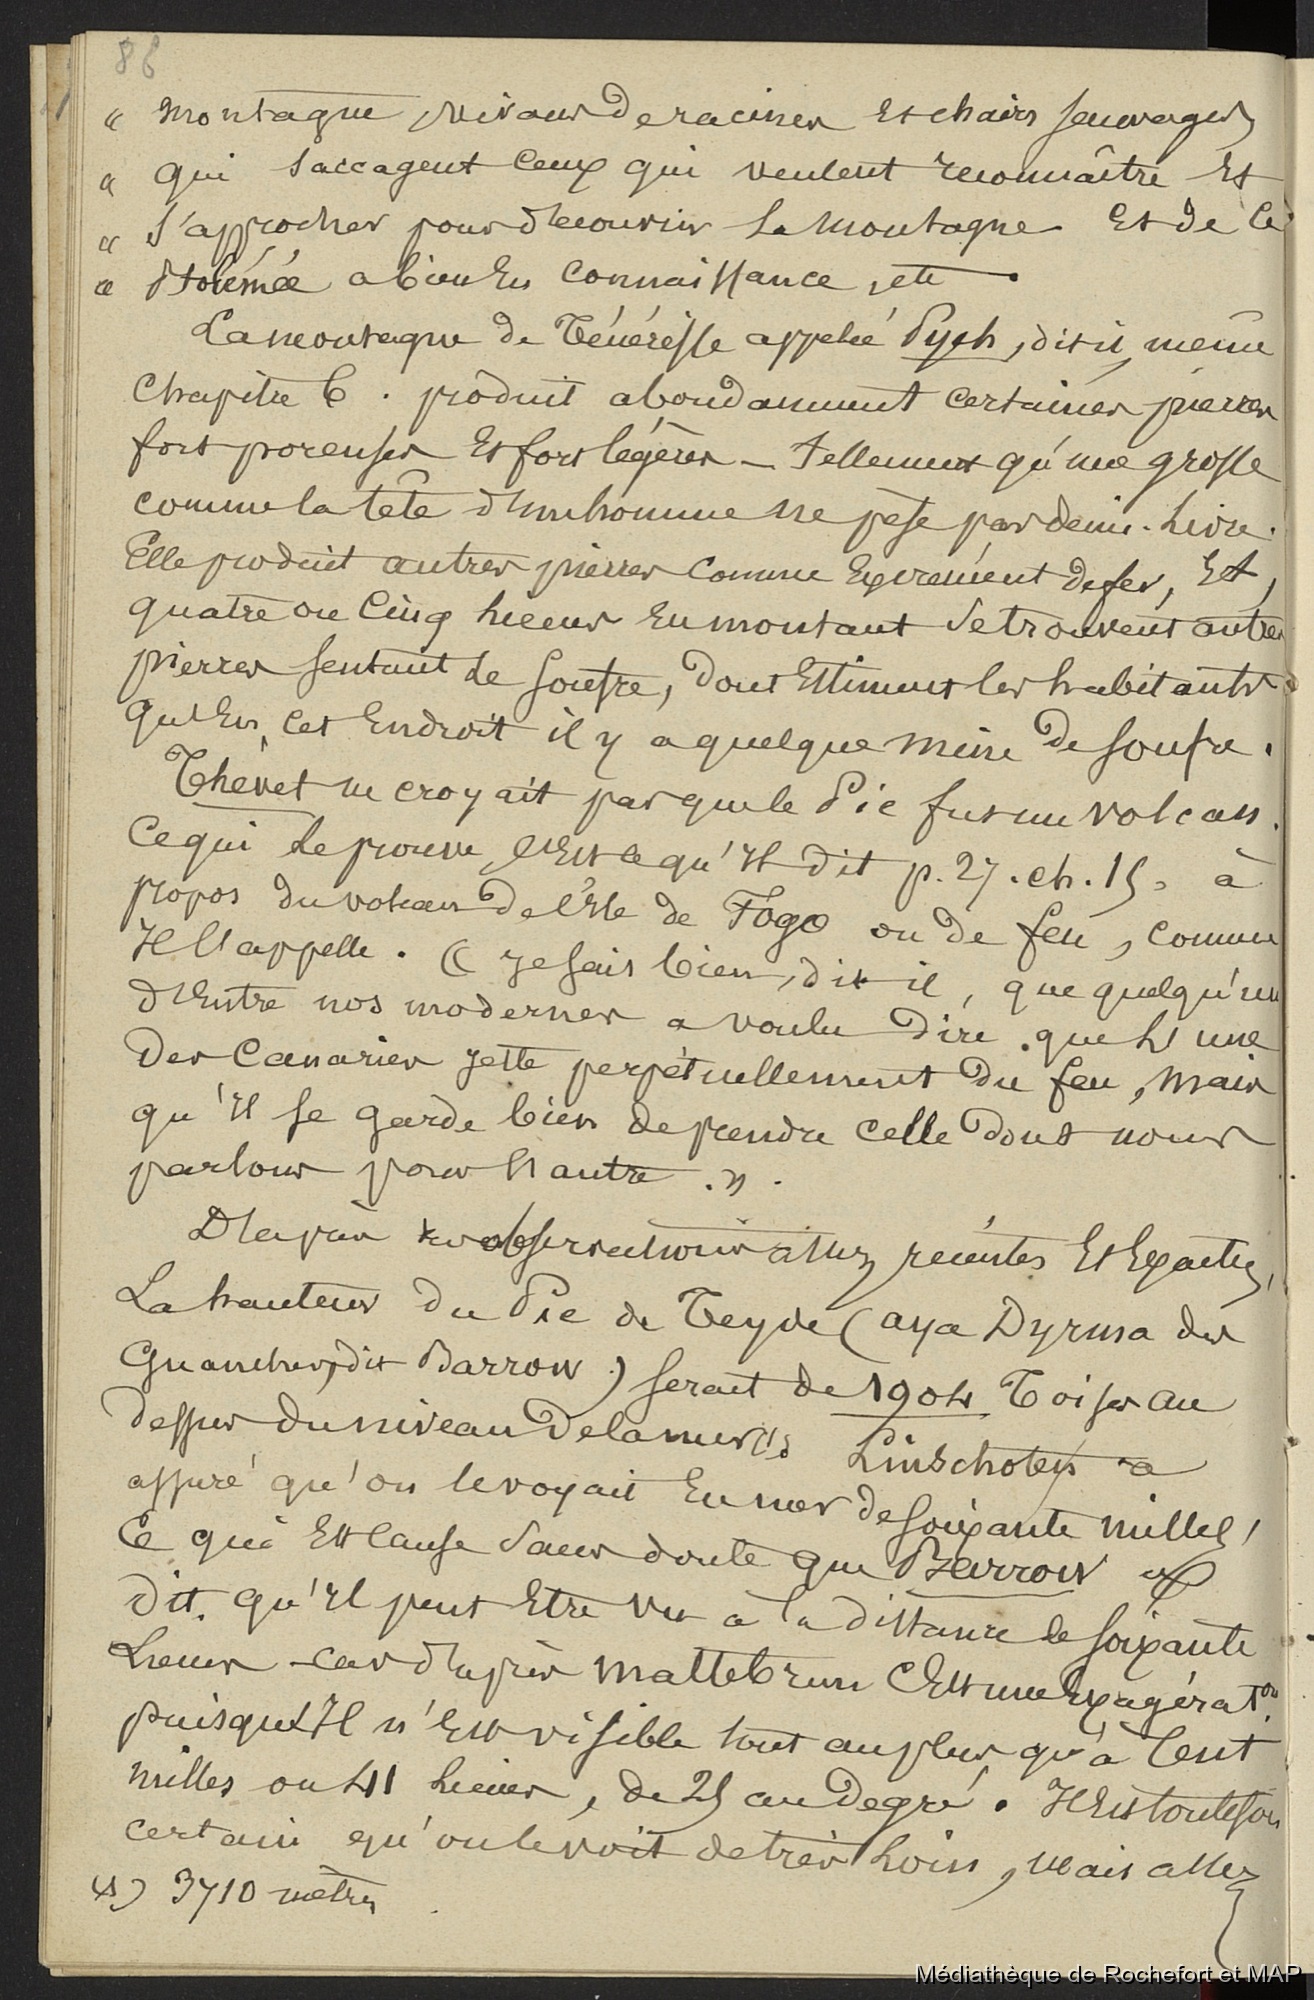 86
" montagne, vivans de racines et chairs sauvages,
" qui saccagent ceux qui veulent reconnaître et
" s'approcher pour découvrir la montagne et de ce
" Ptolémée a bien eu connaissance, etc.
La montagne de Ténériffe appelée Pych, dit-il, même
chapitre 6. produit abondamment certaines pierres
fort poreuses et fort légères — tellement qu'une grosse
comme la tête d'un homme ne pèse pas demi-livre.
Elle produit autres pierres comme excrément de fer, et,
quatre ou cinq lieues en montant se trouvent autres
pierres sentant le soufre, dont estiment les habitants
qu'en cet endroit il y a quelque mine de soufre.
Thévet ne croyait pas que le Pic fut un volcan.
Ce qui le prouve, c'est ce qu'il dit p. 27. ch. 15. à
propos du volcan de l'île de Fogo ou de feu, comme
il l'appelle. « je sais bien, dit-il, que quelqu'un
d'entre nos modernes a voulu dire que l'une
des Canaries jette perpétuellement du feu, mais
qu'il se garde bien de prendre celle dont nous
parlons pour l'autre. ».
D'après observations assez récentes et exactes,
La hauteur du Pic de Teyde (aya Dyrma des
Guanches, dit Barrow) serait de 1904 Toises au
dessus du niveau de la mer (1) Linschoten a
assuré qu'on le voyait en mer de soixante milles,
Ce qui est cause sans doute que Barrow a
dit qu'il peut être vu à la distance de soixante
Lieues — car d'après Maltebrun c'est une exagérat.on
puisqu'il n'est visible tout au plus qu'à cent
milles ou 41 lieues, de 25 au degré. Il est toutefois
certain qu'on le voit de très loin, mais assez
(1) 3710 mètres
Médiathèque de Rochefort et MAP